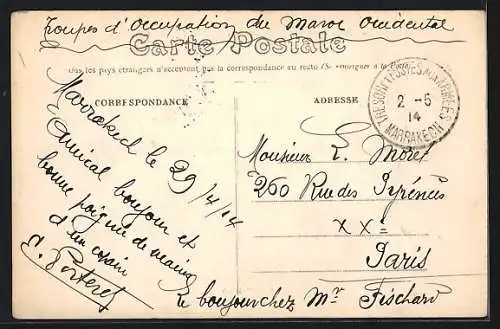 Troupes d'Occupation du Maroc Occidental
Carte Postale
Tous les pays étrangers n'acceptent pas la correspondance au recto (Se renseigner à la Poste)
CORRESPONDANCE
ADRESSE
TRESOR ET POSTES AUX ARMEES
2 - 5
14
MARRAKECH
Marrakech le 29/4/14
Amical bonjour et
bonne poignée de mains
d'un copain
Monsieur L. Morel
260 Rue des Pyrénées
XXe
Paris
le bonjour chez Mr Fischard